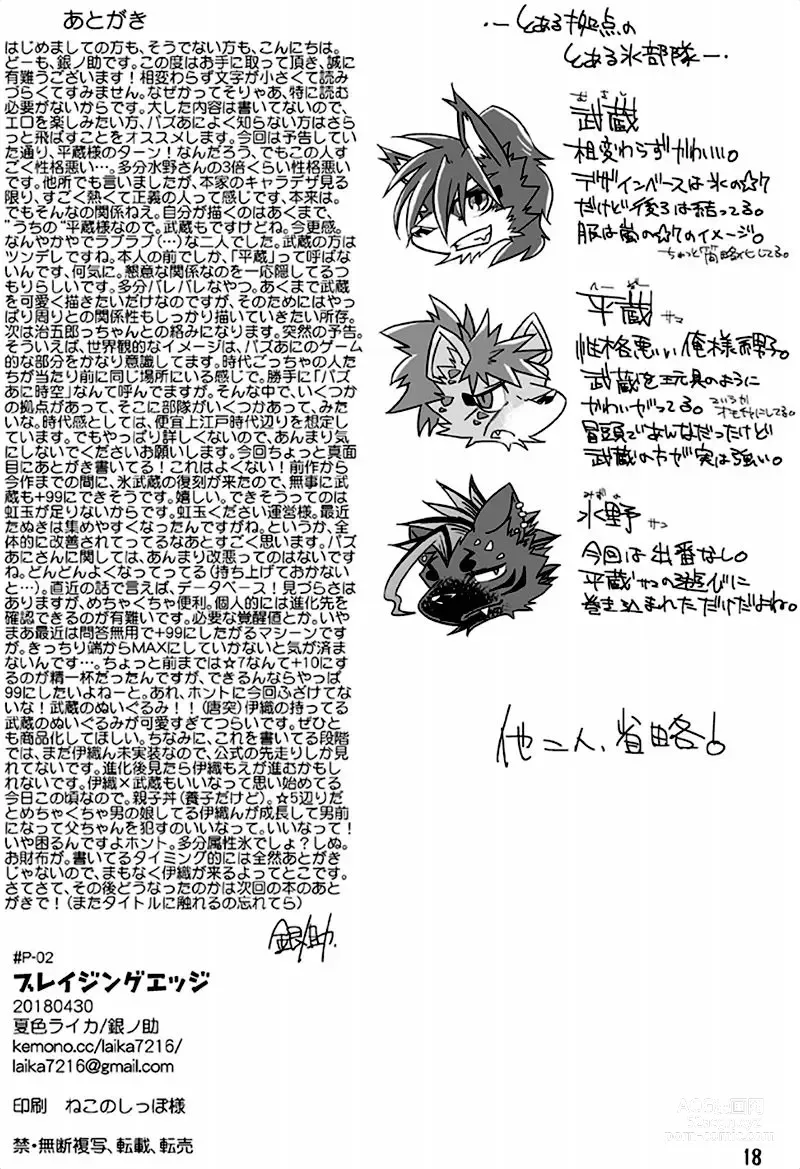 あとがき
はじめましての方も、そうでない方も、こんにちは。
どーも、銀ノ助です。この度はお手に取って頂き、誠に
有難うございます！相変わらず文字が小さくて読み
づらくてすみません。なぜかってそりゃあ、特に読む
必要がないからです。大した内容は書いてないので、
エロを楽しみたい方、パズあによく知らない方はさら
っと飛ばすことをオススメします。今回は予告してい
た通り、平蔵様のターン！なんだろう、でもこの人す
ごく性格悪い…。多分水野さんの3倍くらい性格悪い
です。他所でも言いましたが、本家のキャラデザ見る
限り、すごく熱くて正義の人って感じです、本来は。
でもそんなの関係ねえ。自分が描くのはあくまで、
"うちの"平蔵様なので。武蔵もですけどね。今更感。
なんやかやでラブラブ(…)な二人でした。武蔵の方は
ツンデレですね。本人の前でしか、「平蔵」って呼ばな
いんです、何気に。懇意な関係なのを一応隠してるつ
もりらしいです。多分バレバレなやつ。あくまで武蔵
を可愛く描きたいだけなのですが、そのためにはやっ
ぱり周りとの関係性もしっかり描いていきたい所存。
次は治五郎っちゃんとの絡みになります。突然の予告。
そういえば、世界観的なイメージは、パズあにのゲーム
的な部分をかなり意識してます。時代ごっちゃの人た
ちが当たり前に同じ場所にいる感じで。勝手に「パズ
あに時空」なんて呼んでますが。そんな中で、いくつか
の拠点があって、そこに部隊がいくつかあって、みた
いな。時代感としては、便宜上江戸時代辺りを想定し
ています。でもやっぱり詳しくないので、あんまり気
にしないでくださいお願いします。今回ちょっと真面
目にあとがき書いてる！これはよくない！前作から
今作までの間に、氷武蔵の復刻が来たので、無事に武
蔵も+99にできそうです。嬉しい。できそうってのは
虹玉が足りないからです。虹玉ください運営様。最近
たぬきは集めやすくなったんですがね。というか、全
体的に改善されてってるなあとすごく思います。パズ
あにさんに関しては、あんまり改悪ってのはないです
ね。どんどんよくなってってる(持ち上げておかない
と…)。直近の話で言えば、データベース！見づらさは
ありますが、めちゃくちゃ便利。個人的には進化先を
確認できるのが有難いです。必要な覚醒値とか。いや
まあ最近は問答無用で+99にしたがるマシーンです
が。きっちり端からMAXにしていかないと気が済ま
ないんです…。ちょっと前までは☆7なんて+10にす
るのが精一杯だったんですが、できるんならやっぱ
99にしたいよねーと。あれ、ホントに今回ふざけてな
いな！武蔵のぬいぐるみ！！(唐突)伊織の持ってる
武蔵のぬいぐるみが可愛すぎてつらいです。ぜひと
も商品化してほしい。ちなみに、これを書いてる段階
では、まだ伊織ん未実装なので、公式の先走りしか見
れてないです。進化後見たら伊織もえが進むかもし
れないです。伊織×武蔵もいいなって思い始めてる
今日この頃なので。親子丼(養子だけど)。☆5辺りだ
とめちゃくちゃ男の娘してる伊織んが成長して男前
になって父ちゃんを犯すのいいなって。いいなって！
いや困るんですよホント。多分属性氷でしょ？しぬ。
お財布が。書いてるタイミング的には全然あとがき
じゃないので、まもなく伊織が来るよってとこです。
さてさて、その後どうなったのかは次回の本のあと
がきで！(またタイトルに触れるの忘れてら)
銀ノ助.
#P-02
ブレイジングエッジ
20180430
夏色ライカ/銀ノ助
kemono.cc/laika7216/
laika7216@gmail.com
印刷　ねこのしっぽ様
禁・無断複写、転載、転売
・―とある拠点の
とある氷部隊―・
むさし
武蔵
相変わらずかわいい。
デザインベースは氷の☆7
だけど後ろは結ってる。
服は嵐の☆7のイメージ。
ちょっと簡略化してる。
へーぞー
平蔵サマ
性格悪い俺様男子。
武蔵を玩具のように
かわいがってる。
というかオモチャにしてる。
冒頭であんなだったけど
武蔵の方が実は強い。
みずの
水野サン
今回は出番なし。
平蔵サマの遊びに
巻き込まれただけだよね。
他二人、省略！
18